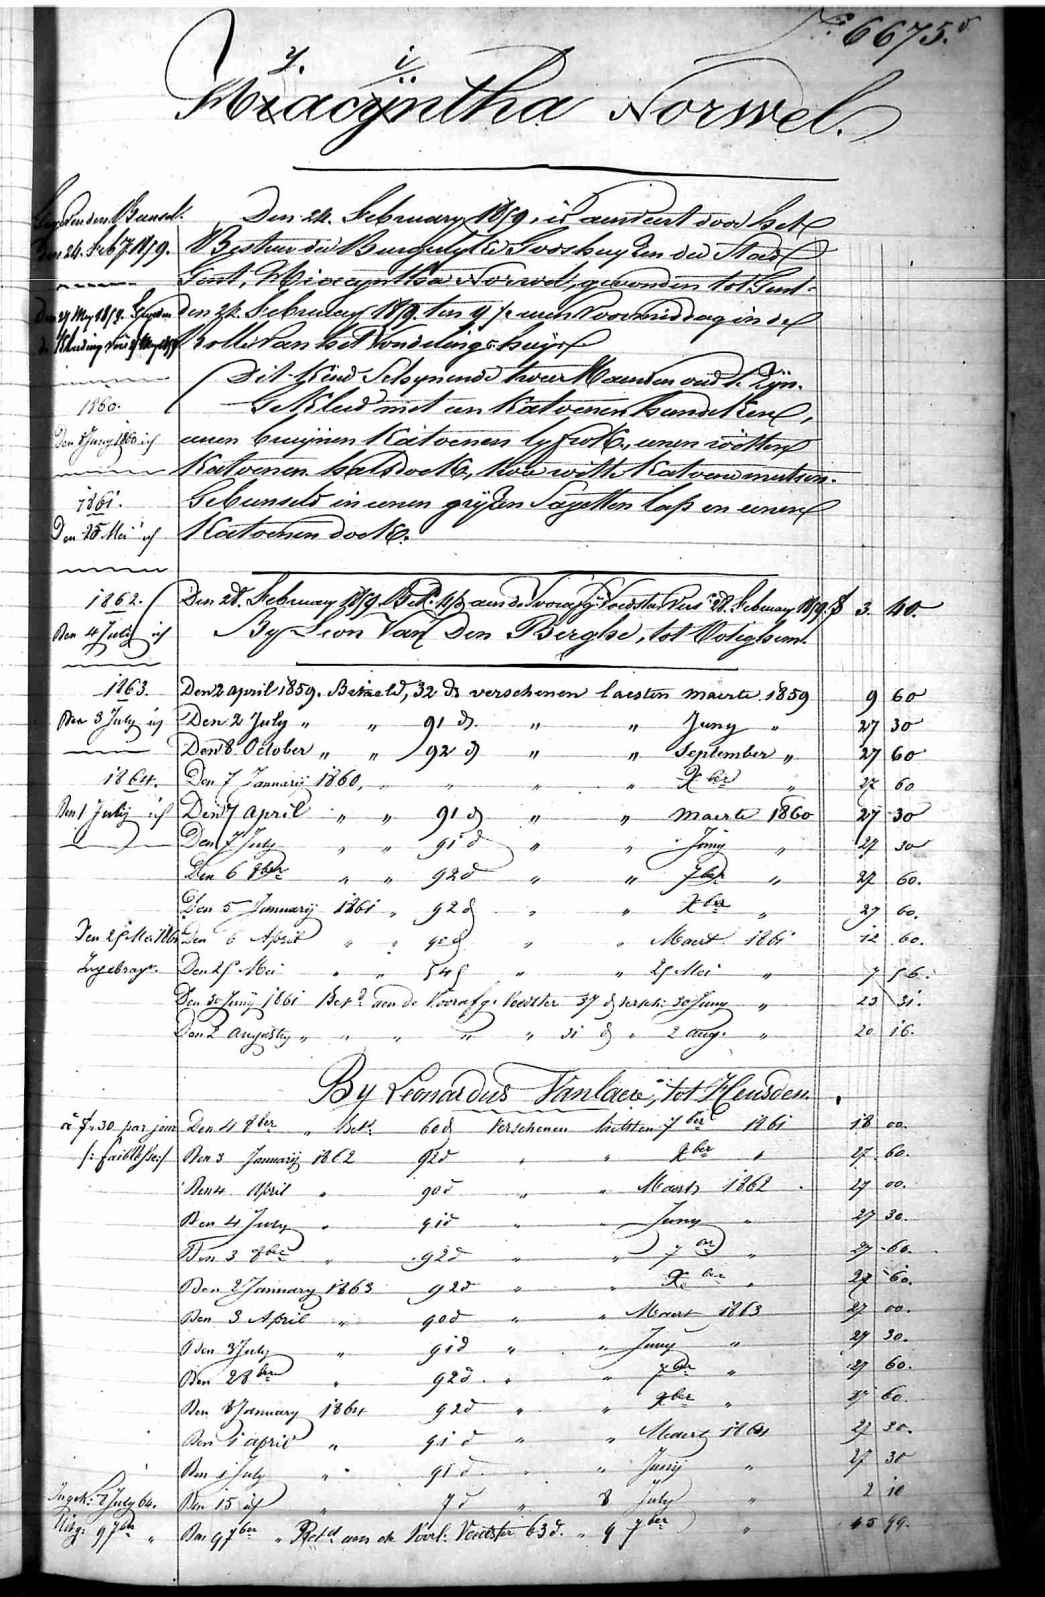 N.o 6675.
y. i
Hiacÿntha Norwel.
Den 24. February 1859, is aenveert door het
Den 24. Feb.y 1859. Bestuer der Burgelyke Godshuyzen der Stad
Gent, Hiacyntha Norwel, gevonden tot Gent
den 24. February 1859. ten 9 ½ uren voormiddag in de
Rolle van het Vondelingshuys
Dit Kind Schynende twee Maenden oud te zyn.
1860. Gekleed met een katoenen hemdeken,
eenen bruynen katoenen lyfrok, eenen witten
katoenen halsdoek, twee witte katoene mutsen.
1861. Gebunseld in eenen gryzen Sayetten lap en eenen
Den 25 Mei id katoenen doek.
1862. Den 28. February 1859. Bet. aen de Voorafg. Voedster 28. February 1859. 3. 40.
Den 4 July id By Leon Van Den Berghe, tot Hoteghem.
1863. Den 2 april 1859. Betaeld, 32 d verschenen laesten maerte 1859 9 60
Den 3 July id Den 2 July " " 91 d. " " Juny " 27 30
Den 8. October " " 92 d " " September " 27 60
1864. Den 7 Januarÿ 1860, " " " " Xber " 27 60
Den 1 July id Den 7 april " " 91 d " " maerte 1860 27 30
Den 7 July " " 91 d " " Juny " 27 30
Den 6 8ber " " 92 d " " 7ber " 27 60.
Den 5 Januarÿ 1861 " 92 d " " Xber " 27 60.
Den 6 April " " 90 d " " Maert 1861 12 60.
Den 25 Mei " " 54 d " " 25 Mei " 7 56.
Den 30 Junÿ 1861 Bet.d aen de Voorafg. Voedster 37 d versch: 30 Juny " 23 31.
Den 2 Augusty " " " " " 31 d " 2 aug. " 20 16.
By Leonardus Vanlaere, tot Heusden.
à f. 30 par jour Den 4 8ber " bet. 60 d Verschenen laetsten 7ber 1861 18 00.
/: faiblesse :/ Den 3 Januarÿ 1862 92 d " " Xber " 27 60.
Den 4 April " 90 d " " Maert 1862 27 00.
Den 4 July " 91 d " " Juny " 27 30.
Den 3 8ber " 92 d " " 7ber " 27 60.
Den 2 January 1863 92 d " " Xber " 27 60.
Den 3 April " 90 d " " Maert 1863 27 00.
Den 3 July " 91 d " " Juny " 27 30.
Den 2 8ber " 92 d " " 7ber " 27 60.
Den 8 January 1864 92 d " " Xber " 27 60.
Den 1 april " 91 d " " Maert 1864 27 30.
Den 1 July " 91 d " " Junÿ " 27 30
Ingek: 8 July 64. Den 15 id " 7 d " 8 July " 2 10
Uitg: 9 7ber " Den 9 7ber " Bet.d aen de Voorl. Voedster 63 d. " 9 7ber " 45 99.